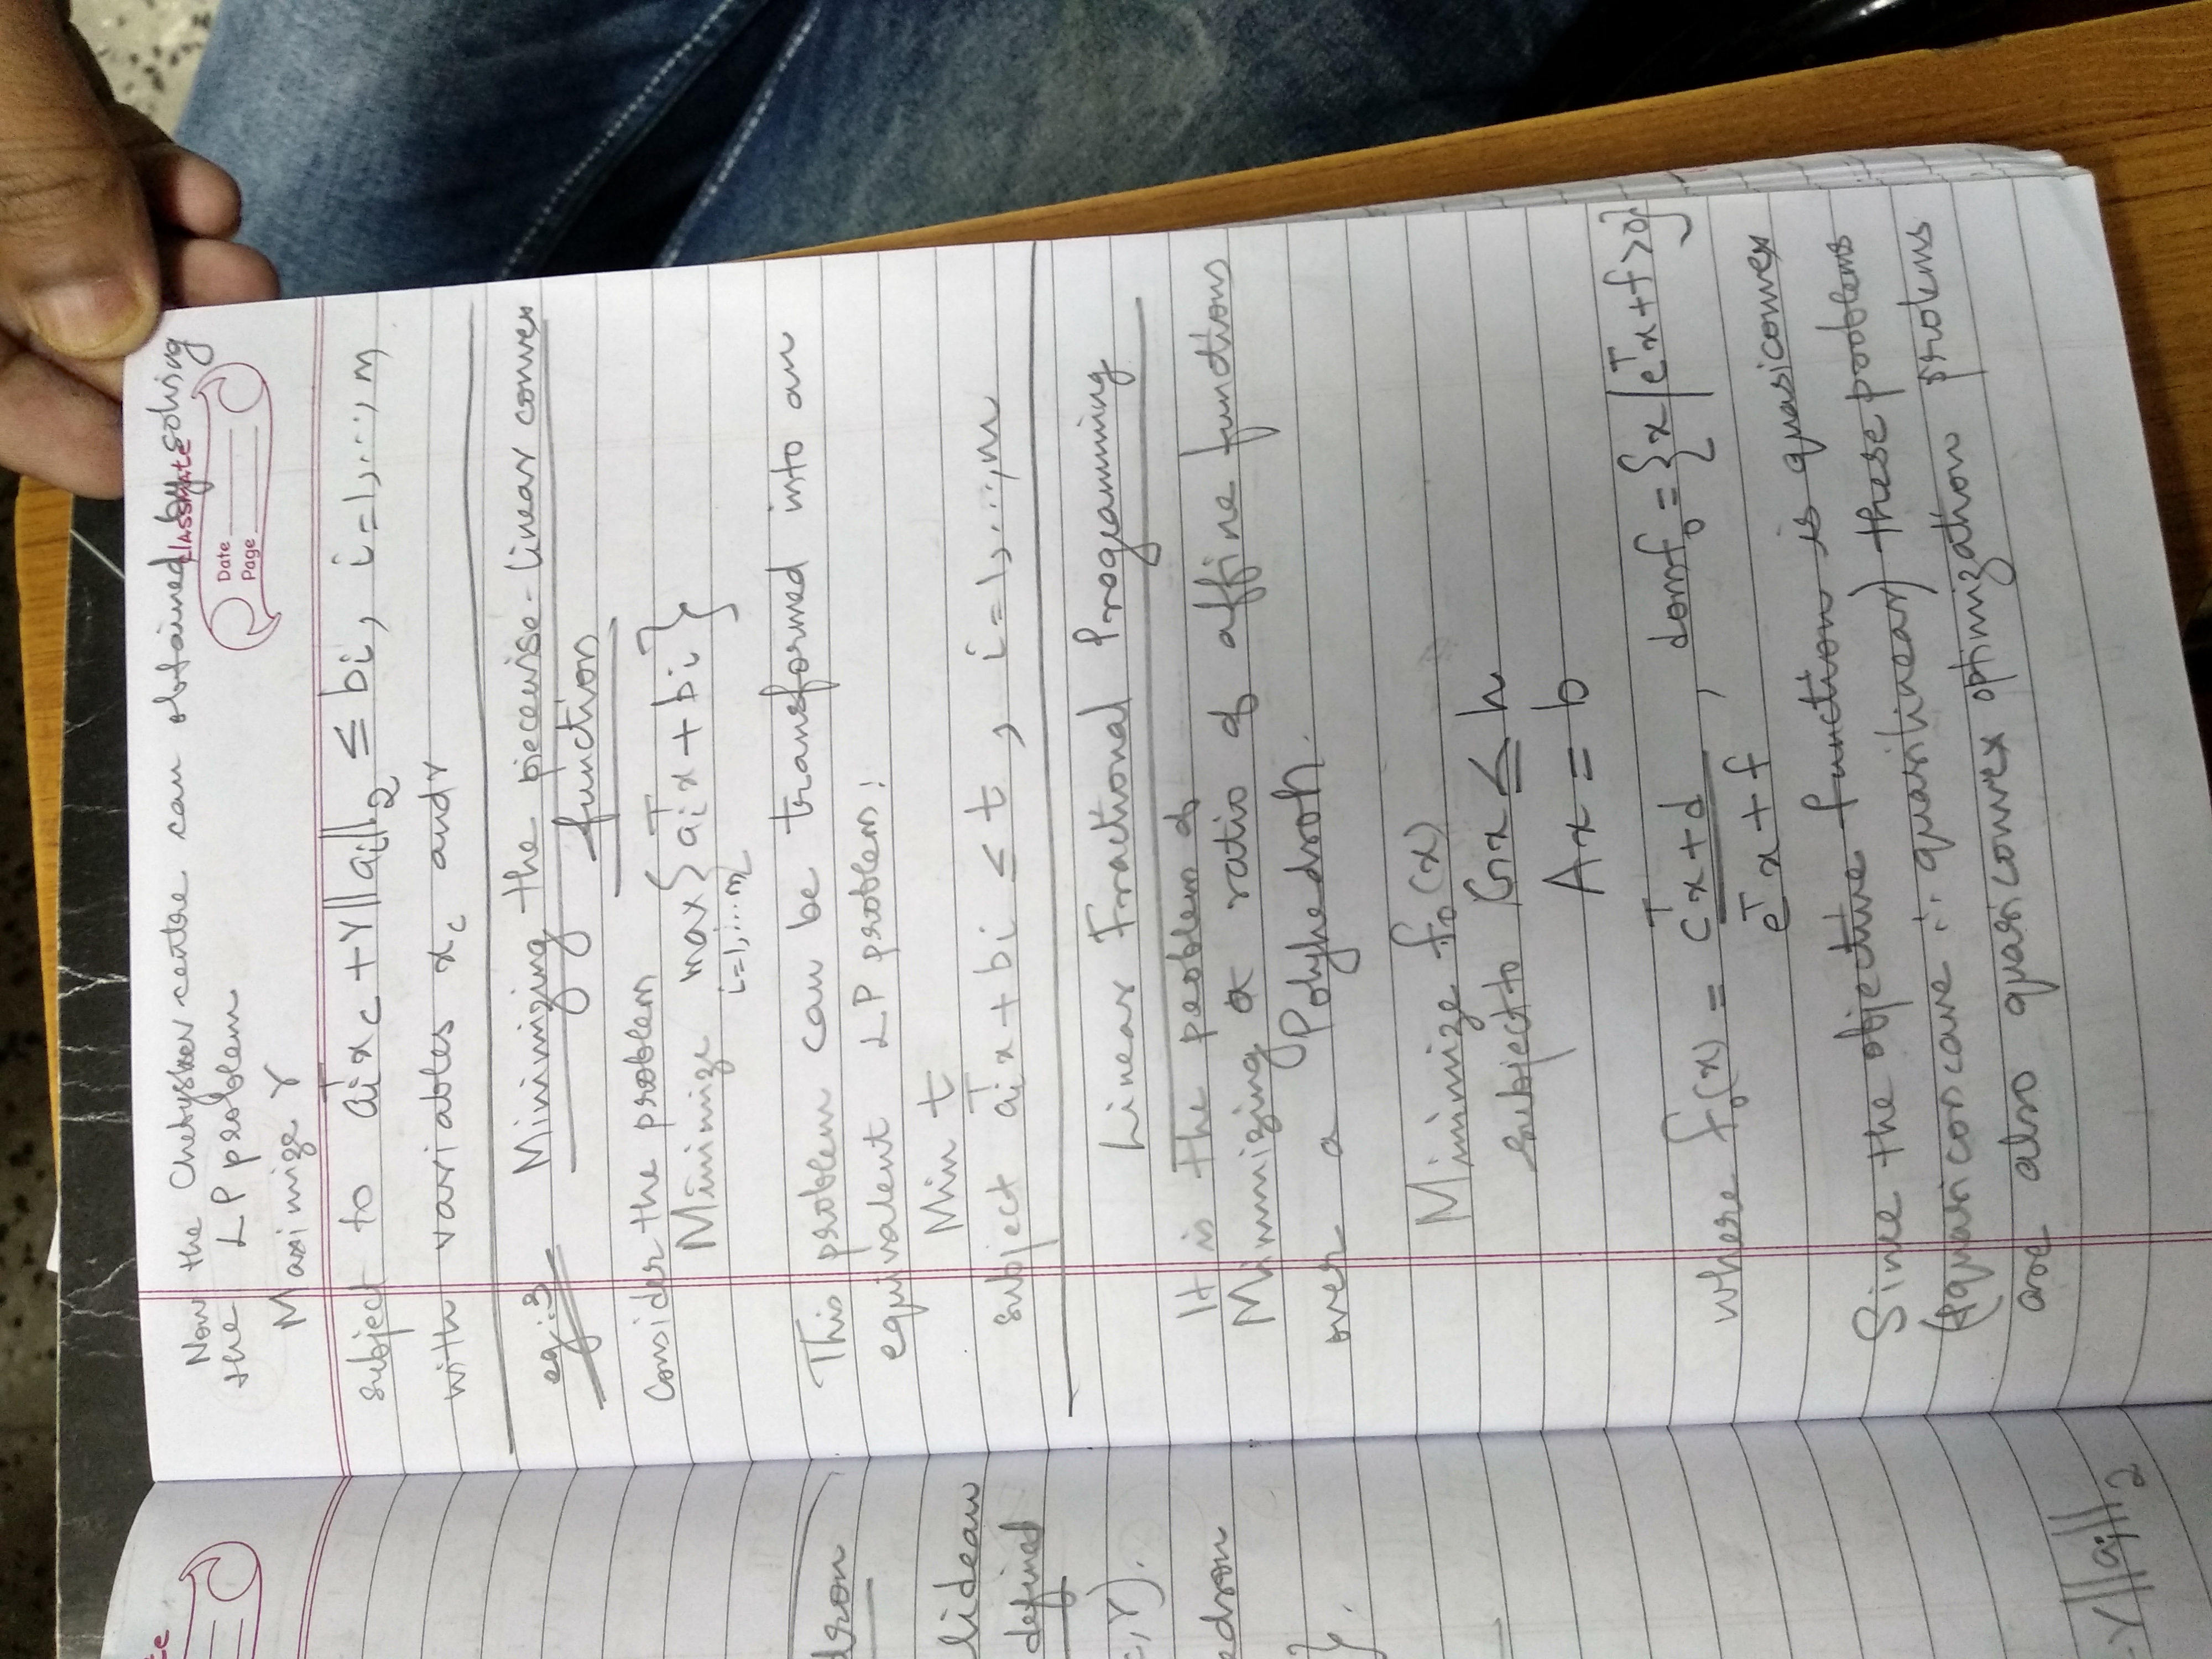 te
dron
lideau
defined
c,r).
edron
}.
-r||ai||₂
Now the Chebyshev centre can obtained by solving
classmate
the LP problem
Date
Page
Maximize r
subject to aᵢᵀx_c + r||aᵢ||₂ ≤ bᵢ, i=1,...,m
with variables x_c and r
eg:3 Minimizing the piecewise-linear convex
function
Consider the problem
Minimize max {aᵢᵀx + bᵢ}
i=1,...m
This problem can be transformed into an
equivalent LP problem:
Min t
subject aᵢᵀx + bᵢ ≤ t, i=1,...,m
Linear Fractional Programming
It is the problem of
Minimizing a ratio of affine functions
over a Polyhedron.
Minimize f₀(x)
subject to Gx ≤ h
Ax = b
where f₀(x) = cᵀx+d / eᵀx+f , domf₀ = {x/eᵀx+f>0}
Since the objective function is quasiconvex
(&quasiconcave ∴ quasilinear) these problems
are also quasiconvex optimization prolems